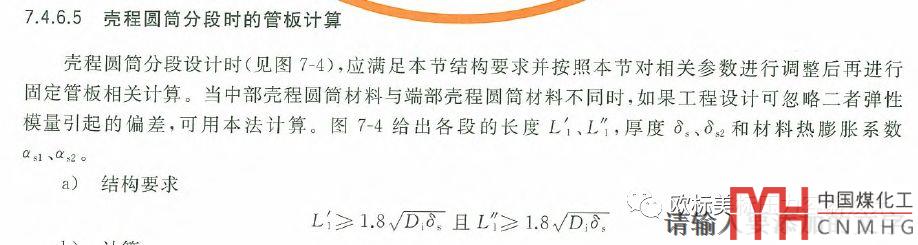 7.4.6.5 壳程圆筒分段时的管板计算
壳程圆筒分段设计时(见图 7-4),应满足本节结构要求并按照本节对相关参数进行调整后再进行
固定管板相关计算。当中部壳程圆筒材料与端部壳程圆筒材料不同时,如果工程设计可忽略二者弹性
模量引起的偏差,可用本法计算。图 7-4 给出各段的长度 L′₁、L″₁,厚度 δₛ、δₛ₂ 和材料热膨胀系数
αₛ₁、αₛ₂。
a) 结构要求
L′₁≥1.8√Dᵢδₛ 且 L″₁≥1.8√Dᵢδₛ
欧标美
请输入
MH 中国煤化工
CNMHG